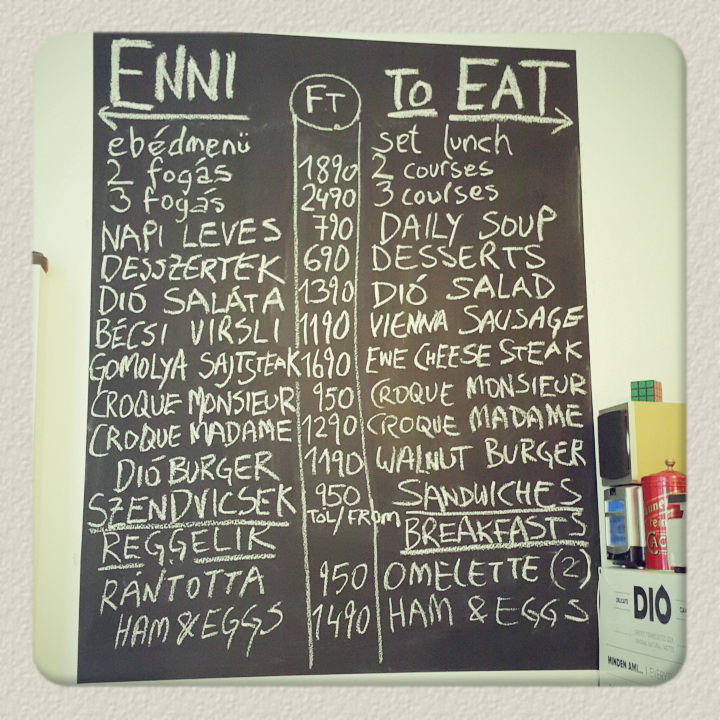 ENNI FT TO EAT
ebédmenü set lunch
2 fogás 1890 2 courses
3 fogás 2490 3 courses
NAPI LEVES 790 DAILY SOUP
DESSZERTEK 690 DESSERTS
DIÓ SALÁTA 1390 DIÓ SALAD
BÉCSI VIRSLI 1190 VIENNA SAUSAGE
GOMOLYA SAJTSTEAK 1690 EWE CHEESE STEAK
CROQUE MONSIEUR 950 CROQUE MONSIEUR
CROQUE MADAME 1290 CROQUE MADAME
DIÓ BURGER 1190 WALNUT BURGER
SZENDVICSEK 950 SANDWICHES
TÓL/FROM
REGGELIK BREAKFASTS
RÁNTOTTA 950 OMELETTE (2)
HAM & EGGS 1490 HAM & EGGS
DIÓ
MINDEN AMI...